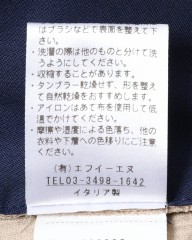 はブラシなどで表面を整えて下さい。
・洗濯の際は他のものと分けて洗うようにしてください。
・収縮することがあります。
・タンブラー乾燥せず、形を整えて自然乾燥をおすすめします。
・アイロンはあて布を使用して低温でかけてください。
・摩擦や湿度による色落ち、他の衣料や下着への色移りにご注意ください。
(有)エフイーエヌ
TEL03-3498-1642
イタリア製